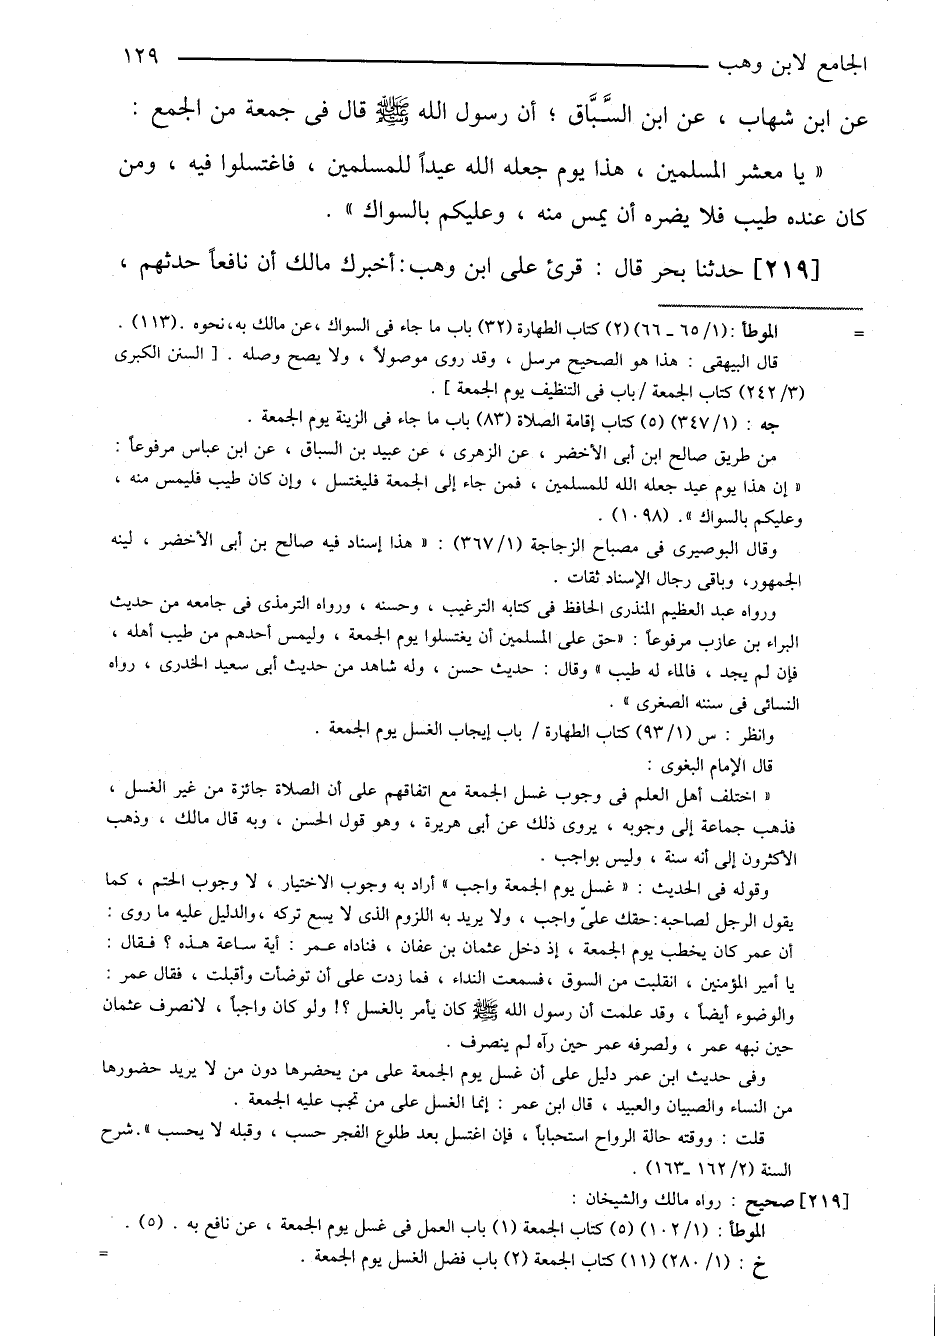 الجامع لابن وهب ١٢٩
عن ابن شهاب ، عن ابن السَّبَّاق ؛ أن رسول الله ﷺ قال فى جمعة من الجمع :
« يا معشر المسلمين ، هذا يوم جعله الله عيداً للمسلمين ، فاغتسلوا فيه ، ومن
كان عنده طيب فلا يضره أن يمس منه ، وعليكم بالسواك » .
[٢١٩] حدثنا بحر قال : قرئ على ابن وهب : أخبرك مالك أن نافعاً حدثهم ،
= الموطأ : (١/ ٦٥ ـ ٦٦) (٢) كتاب الطهارة (٣٢) باب ما جاء فى السواك ، عن مالك به، نحوه . (١١٣) .
قال البيهقى : هذا هو الصحيح مرسل ، وقد روى موصولاً ، ولا يصح وصله . [ السنن الكبرى
(٣/ ٢٤٢) كتاب الجمعة / باب فى التنظيف يوم الجمعة ] .
جه : (١/ ٣٤٧) (٥) كتاب إقامة الصلاة (٨٣) باب ما جاء فى الزينة يوم الجمعة .
من طريق صالح ابن أبى الأخضر ، عن الزهرى ، عن عبيد بن السباق ، عن ابن عباس مرفوعاً :
« إن هذا يوم عيد جعله الله للمسلمين ، فمن جاء إلى الجمعة فليغتسل ، وإن كان طيب فليمس منه ،
وعليكم بالسواك ». (١٠٩٨) .
وقال البوصيرى فى مصباح الزجاجة (١/ ٣٦٧) : « هذا إسناد فيه صالح بن أبى الأخضر ، لينه
الجمهور، وباقى رجال الإسناد ثقات .
ورواه عبد العظيم المنذرى الحافظ فى كتابه الترغيب ، وحسنه ، ورواه الترمذى فى جامعه من حديث
البراء بن عازب مرفوعاً : «حق على المسلمين أن يغتسلوا يوم الجمعة ، وليمس أحدهم من طيب أهله ،
فإن لم يجد ، فالماء له طيب » وقال : حديث حسن ، وله شاهد من حديث أبى سعيد الخدرى ، رواه
النسائى فى سننه الصغرى » .
وانظر : س (١/ ٩٣) كتاب الطهارة / باب إيجاب الغسل يوم الجمعة .
قال الإمام البغوى :
« اختلف أهل العلم فى وجوب غسل الجمعة مع اتفاقهم على أن الصلاة جائزة من غير الغسل ،
فذهب جماعة إلى وجوبه ، يروى ذلك عن أبى هريرة ، وهو قول الحسن ، وبه قال مالك ، وذهب
الأكثرون إلى أنه سنة ، وليس بواجب .
وقوله فى الحديث : « غسل يوم الجمعة واجب » أراد به وجوب الاختيار ، لا وجوب الحتم ، كما
يقول الرجل لصاحبه : حقك علىّ واجب ، ولا يريد به اللزوم الذى لا يسع تركه ، والدليل عليه ما روى :
أن عمر كان يخطب يوم الجمعة ، إذ دخل عثمان بن عفان ، فناداه عمر : أية ساعة هذه ؟ فقال :
يا أمير المؤمنين ، انقلبت من السوق ، فسمعت النداء ، فما زدت على أن توضأت وأقبلت ، فقال عمر :
والوضوء أيضاً ، وقد علمت أن رسول الله ﷺ كان يأمر بالغسل ؟! ولو كان واجباً ، لانصرف عثمان
حين نبهه عمر ، ولصرفه عمر حين رآه لم ينصرف .
وفى حديث ابن عمر دليل على أن غسل يوم الجمعة على من يحضرها دون من لا يريد حضورها
من النساء والصبيان والعبيد ، قال ابن عمر : إنما الغسل على من تجب عليه الجمعة .
قلت : ووقته حالة الرواح استحباباً ، فإن اغتسل بعد طلوع الفجر حسب ، وقبله لا يحسب ». شرح
السنة (٢/ ١٦٢ ـ ١٦٣) .
[٢١٩] صحيح : رواه مالك والشيخان :
الموطأ : (١/ ١٠٢) (٥) كتاب الجمعة (١) باب العمل فى غسل يوم الجمعة ، عن نافع به . (٥) .
خ : (١/ ٢٨٠) (١١) كتاب الجمعة (٢) باب فضل الغسل يوم الجمعة . =